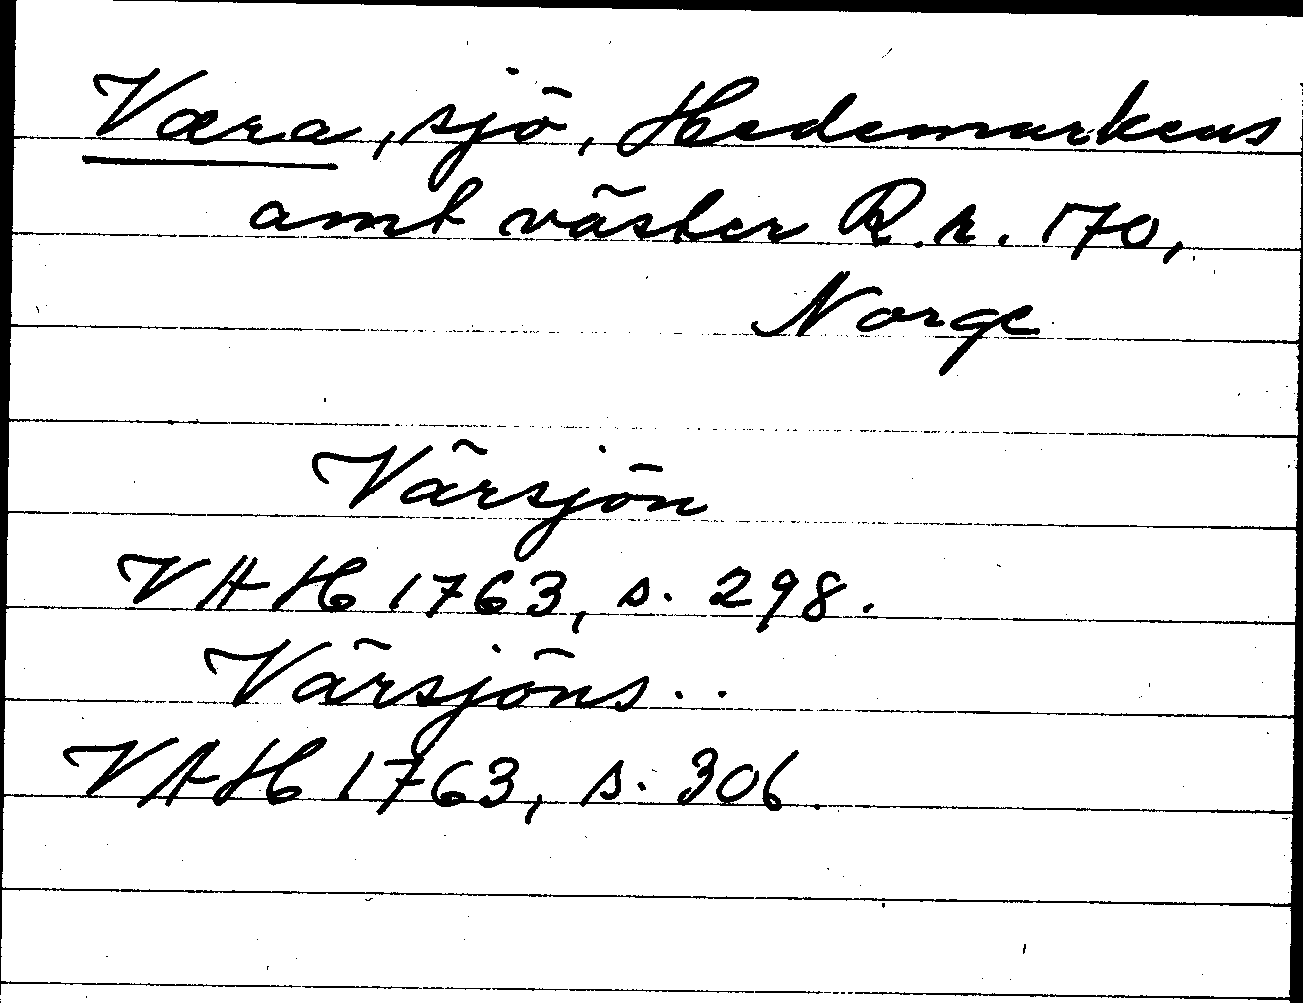 Væra, sjö, Hedemarkens
amt väster R.r. 170,
Norge
Värsjön
VAH 1763, s. 298.
Värsjöns..
VAH 1763, s. 306.